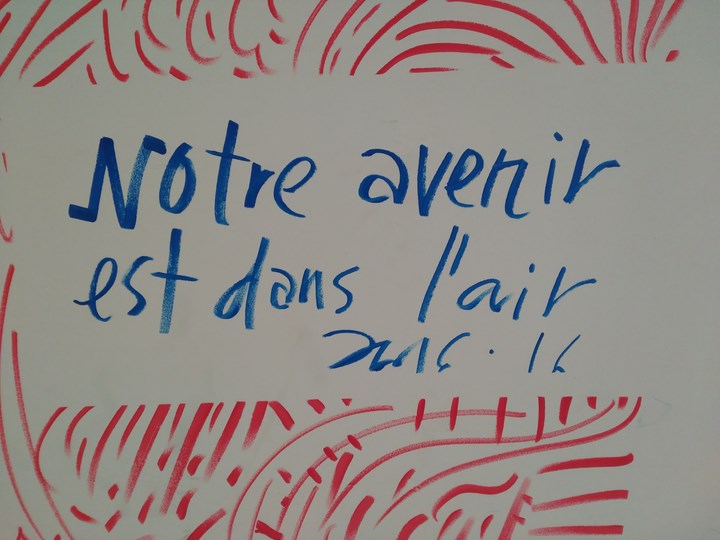 Notre avenir
est dans l'air
2016.16